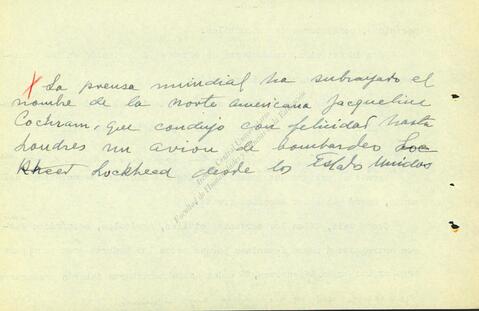 La prensa mundial ha subrayado el
nombre de la norte americana Jacqueline
Cochram, que condujo con felicidad hasta
Londres un avion de bombardeo Loc
Lockheed desde los Estados Unidos